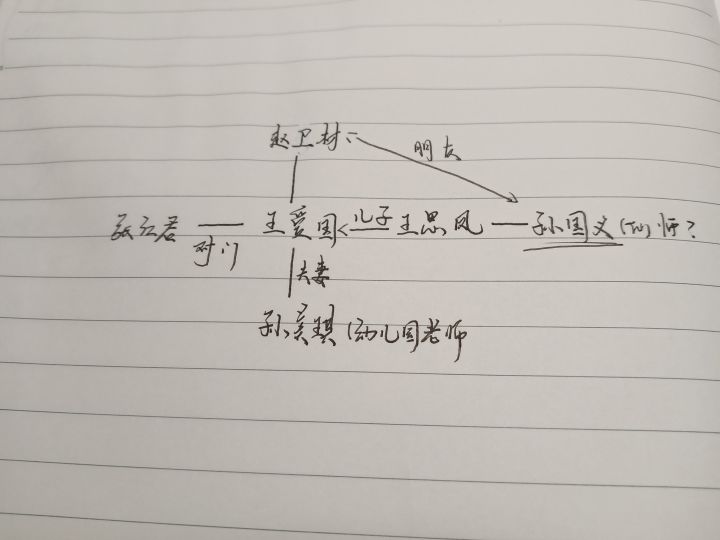 赵卫村：
朋友
张红君 对门 王爱国 儿子 王思凤 孙国文
夫妻
孙美琪（幼儿园老师